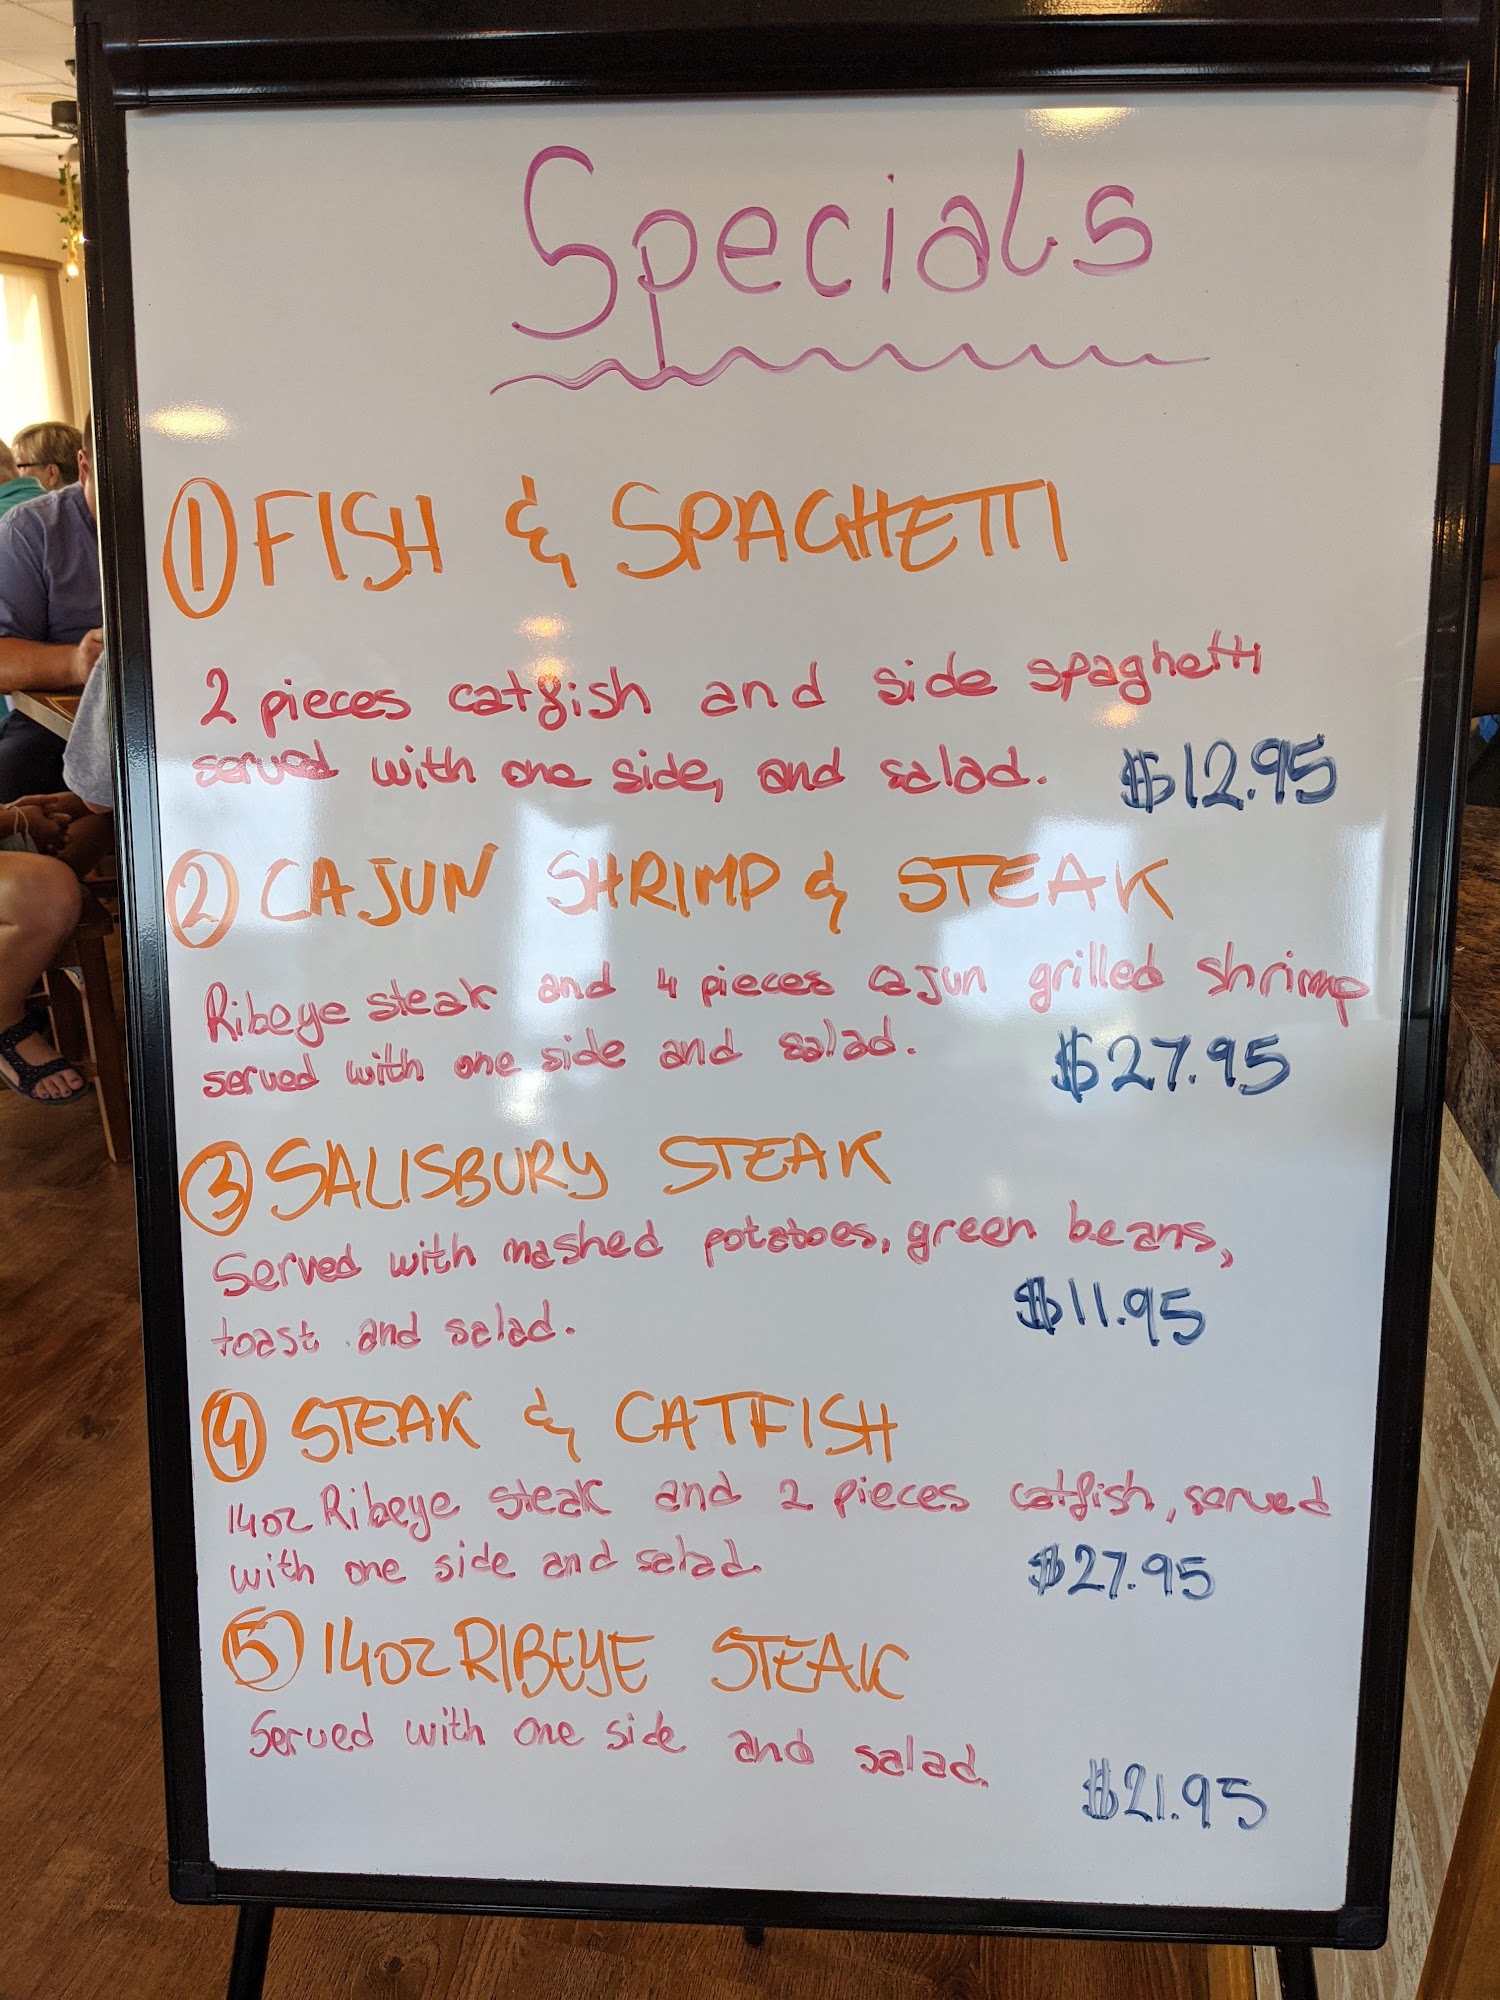 Specials
1 FISH & SPAGHETTI
2 pieces catfish and side spaghetti
served with one side, and salad. $12.95
2 CAJUN SHRIMP & STEAK
Ribeye steak and 4 pieces cajun grilled shrimp
served with one side and salad. $27.95
3 SALISBURY STEAK
Served with mashed potatoes, green beans,
toast and salad. $11.95
4 STEAK & CATFISH
14oz Ribeye steak and 2 pieces catfish, served
with one side and salad. $27.95
5 14oz RIBEYE STEAK
Served with one side and salad.
$21.95